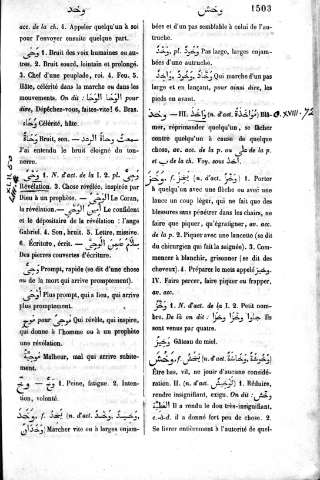 وخد
وخش
1503
acc. de la ch. 4. Appeler quelqu'un à soi
pour l'envoyer ensuite quelque part.
وَحًى 1. Bruit des voix humaines ou au-
tres. 2. Bruit sourd, lointain et prolongé.
3. Chef d'une peuplade, roi. 4. Feu. 5.
Hâte, célérité dans la marche ou dans les
mouvements. On dit : الوَحَا الوَحَا pour
dire, Dépêchez-vous, faites vite! 6. Bras.
وَحَاءٌ Célérité, hâte.
وَحَاةٌ Bruit, son. — سمعت وحاة الرعد
J'ai entendu le bruit éloigné du ton-
nerre.
وَحْيٌ 1. N. d'act. de la I. 2. pl. وُحِيٌّ
Révélation. 3. Chose révélée, inspirée par
Dieu à un prophète. — الوَحْي Le Coran,
la révélation. — أمين الوَحْي Le confident
et le dépositaire de la révélation : l'ange
Gabriel. 4. Son, bruit. 5. Lettre, missive.
6. Écriture, écrit. —
Des pierres couvertes d'écriture.
وَحِيٌّ Prompt, rapide (se dit d'une chose
ou de la mort qui arrive promptement).
أَوْحَى Plus prompt, qui a lieu, qui arrive
plus promptement.
مُوحٍ pour مُوحِيٌ Qui révèle, qui inspire,
qui donne à l'homme ou à un prophète
une révélation.
Malheur, mal qui arrive subite-
ment.
وَخٌّ — وخ 1. Peine, fatigue. 2. Inten-
tion, volonté.
وخد — وَخَدَ f. يَخِدُ (n. d'act. وَخْدٌ, وَخِيدٌ,
وَخَدَانٌ) Marcher vite ou à larges enjam-
bées et d'un pas semblable à celui de l'au-
truche.
وَخْدٌ, pl. وُخُودٌ Pas large, larges enjam-
bées d'une autruche.
وَاخِدٌ, وَخُودٌ, وَخَّادٌ Qui marche d'un pas
large et en lançant, pour ainsi dire, les
pieds en avant.
وخذ — III. وَاخَذَ (n. d'act. مُوَاخَذَةٌ) Blâ-
mer, réprimander quelqu'un, se fâcher
contre quelqu'un à cause de quelque
chose, av. acc. de la p. ou على de la p.
et ب de la ch. Voy. sous أخذ.
وخز — وَخَزَ f. يَخِزُ (n. d'act. وَخْزٌ) 1. Porter
à quelqu'un avec une flèche ou avec une
lance un coup léger, qui ne fait que des
blessures sans pénétrer dans les chairs, ne
faire que piquer, qu'égratigner, av. acc.
de la p. 2. Piquer avec une lancette (se dit
du chirurgien qui fait la saignée). 3. Com-
mencer à blanchir, grisonner (se dit des
cheveux). 4. Préparer le mets appelé وخيز.
IV. Faire percer, faire piquer ou frapper,
av. acc.
وَخْزٌ 1. N. d'act. de la I. 2. Petit nom-
bre. De là on dit : جاؤوا وخزا وخزا Ils
sont venus par quatre.
وَخِيزٌ Gâteau de miel.
وخش — وَخُشَ f. يَوْخُشُ (n. d'act. وَخَاشَةٌ, وُخُوشَةٌ)
Être bas, vil, ne jouir d'aucune considé-
ration. II. (n. d'act. تَوْخِيشٌ) 1. Réduire,
rendre insignifiant, exigu. On dit : وخّش
العطيّة Il a rendu le don très-insignifiant,
c.-à-d. il a donné fort peu de chose. 2.
Se livrer entièrement à l'autorité de quel-